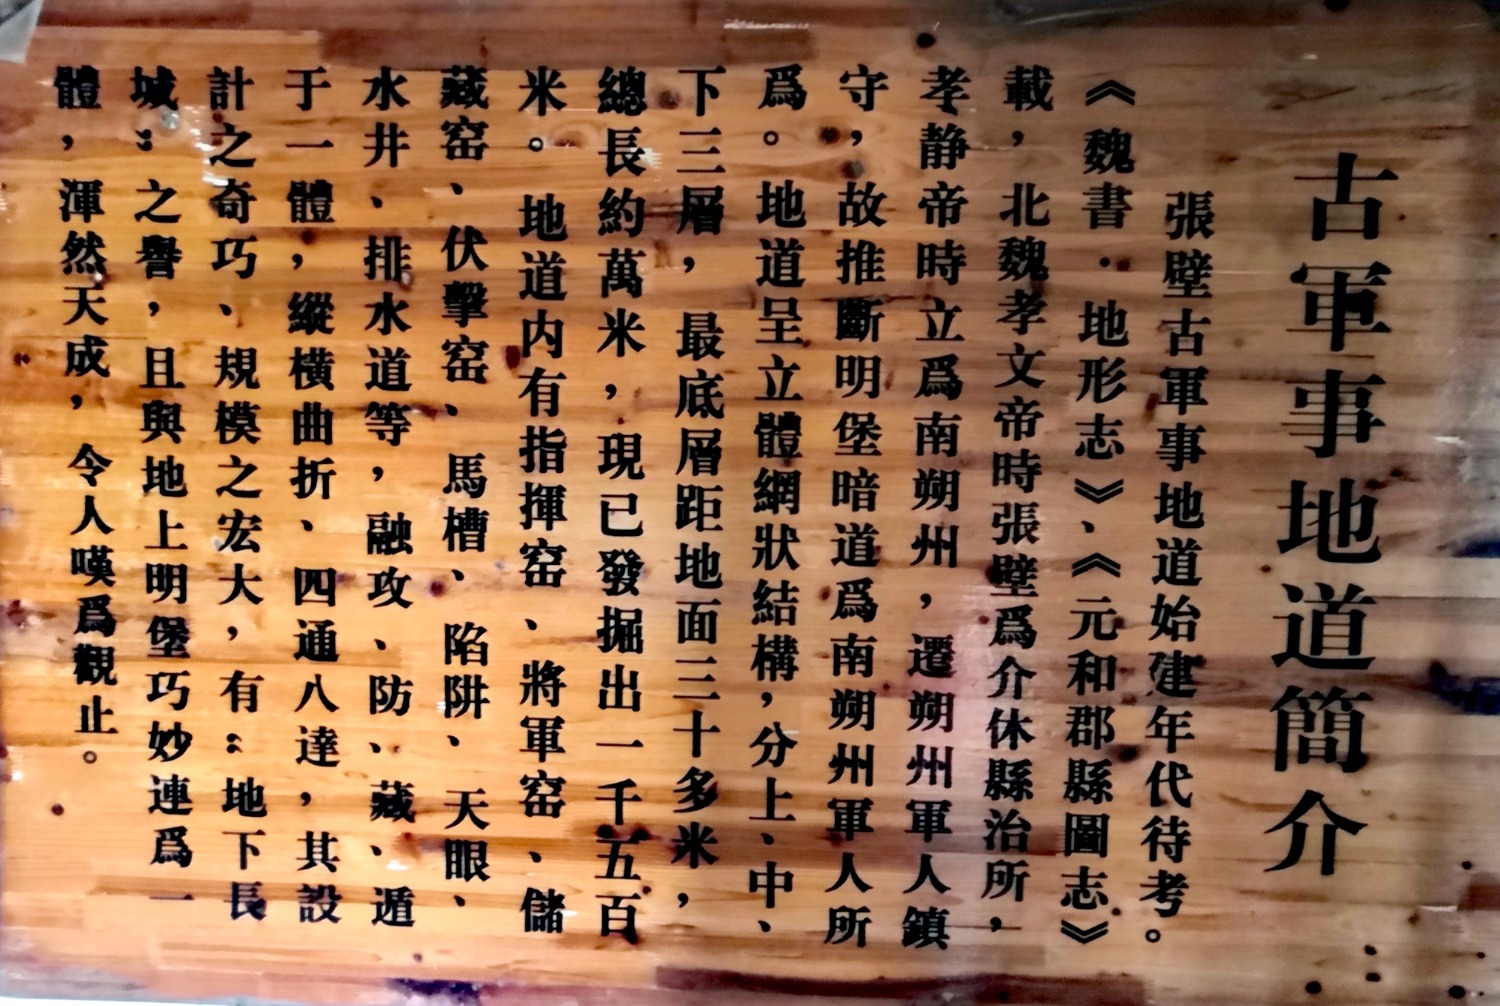 古軍事地道簡介
張壁古軍事地道始建年代待考。
《魏書·地形志》、《元和郡縣圖志》
載，北魏孝文帝時張壁爲介休縣治所，
孝静帝時立爲南朔州，遷朔州軍人鎮
守，故推斷明堡暗道爲南朔州軍人所
爲。地道呈立體網狀結構，分上、中、
下三層，最底層距地面三十多米，
總長約萬米，現已發掘出一千五百
米。地道内有指揮窑、將軍窑、儲
藏窑、伏擊窑、馬槽、陷阱、天眼、
水井、排水道等，融攻、防、藏、遁
于一體，縱横曲折、四通八達，其設
計之奇巧、規模之宏大，有：地下長
城：之譽，且與地上明堡巧妙連爲一
體，渾然天成，令人嘆爲觀止。